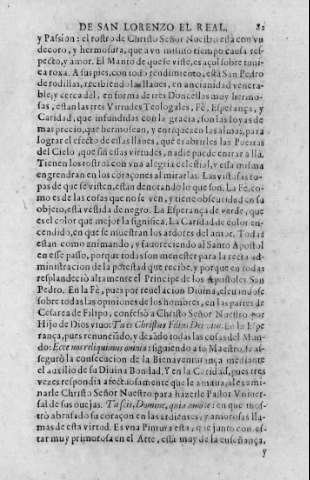 DE SAN LORENZO EL REAL. 82
y Passion: el rostro de Christo Señor Nuestro està con vn
decoro, y hermosura, que a vn mismo tiempo causa res-
pecto, y amor. El Manto de que se viste, es açul sobre tuni-
ca roxa. A sus pies, con todo rendimiento, està San Pedro
de rodillas, recibiendo las llaues, en ancianidad venera-
ble, y cerca del, en forma de tres Doncellas muy hermo-
sas, estan las tres Virtudes Teologales, Fè, Esperança, y
Caridad, que infundidas con la gracia, son las joyas de
mas precio, que hermosean, y enriquecen las almas, para
lograr el efecto de estas llaues, que es abrirles las Puertas
del Cielo, que sin estas virtudes, nadie puede entrar allà.
Tienen los rostros con vna alegria celestial, y essa misma
engendran en los coraçones al mirarlas. Las vistosas ro-
pas de que se visten, estan denotando lo que son. La Fè, co-
mo es de las cosas que no se ven, y tiene obscuridad en su
objeto, està vestida de negro. La Esperança de verde, que
es el color que mejor la significa. La Caridad de color en-
cendido, en que se muestran los ardores del amor. Todas
estan como animando, y fauoreciendo al Santo Apostol
en este passo, porque todas son menester para la recta ad-
ministracion de la potestad que recibe, y porque en todas
resplandeciò altamente el Principe de los Apostoles San
Pedro. En la Fè, pues por reuelacion Diuina, eleuandose
sobre todas las opiniones de los hombres, en las partes de
Cesarea de Filipo, confessò à Christo Señor Nuestro por
Hijo de Dios viuo: Tu es Christus Filius Dei viui. En la Espe-
rança, pues renunciando, y dexando todas las cosas del Mun-
do: Ecce nos reliquimus omnia: siguiendo a su Maestro, se as-
segurò la consecucion de la Bienauenturança mediante
el auxilio de su Diuina Bondad. Y en la Caridad, pues tres
veces respondiò afectuosamente que le amaua, al exami-
narle Christo Señor Nuestro para hazerle Pastor Vniuer-
sal de sus ouejas. Tu scis, Domine, quia amo te: en que mos-
trò abrasado su coraçon en las ardientes, y amorosas lla-
mas de esta virtud. Es vna Pintura esta, que junto con es-
tar muy primorosa en el Arte, està muy de la enseñança,
y